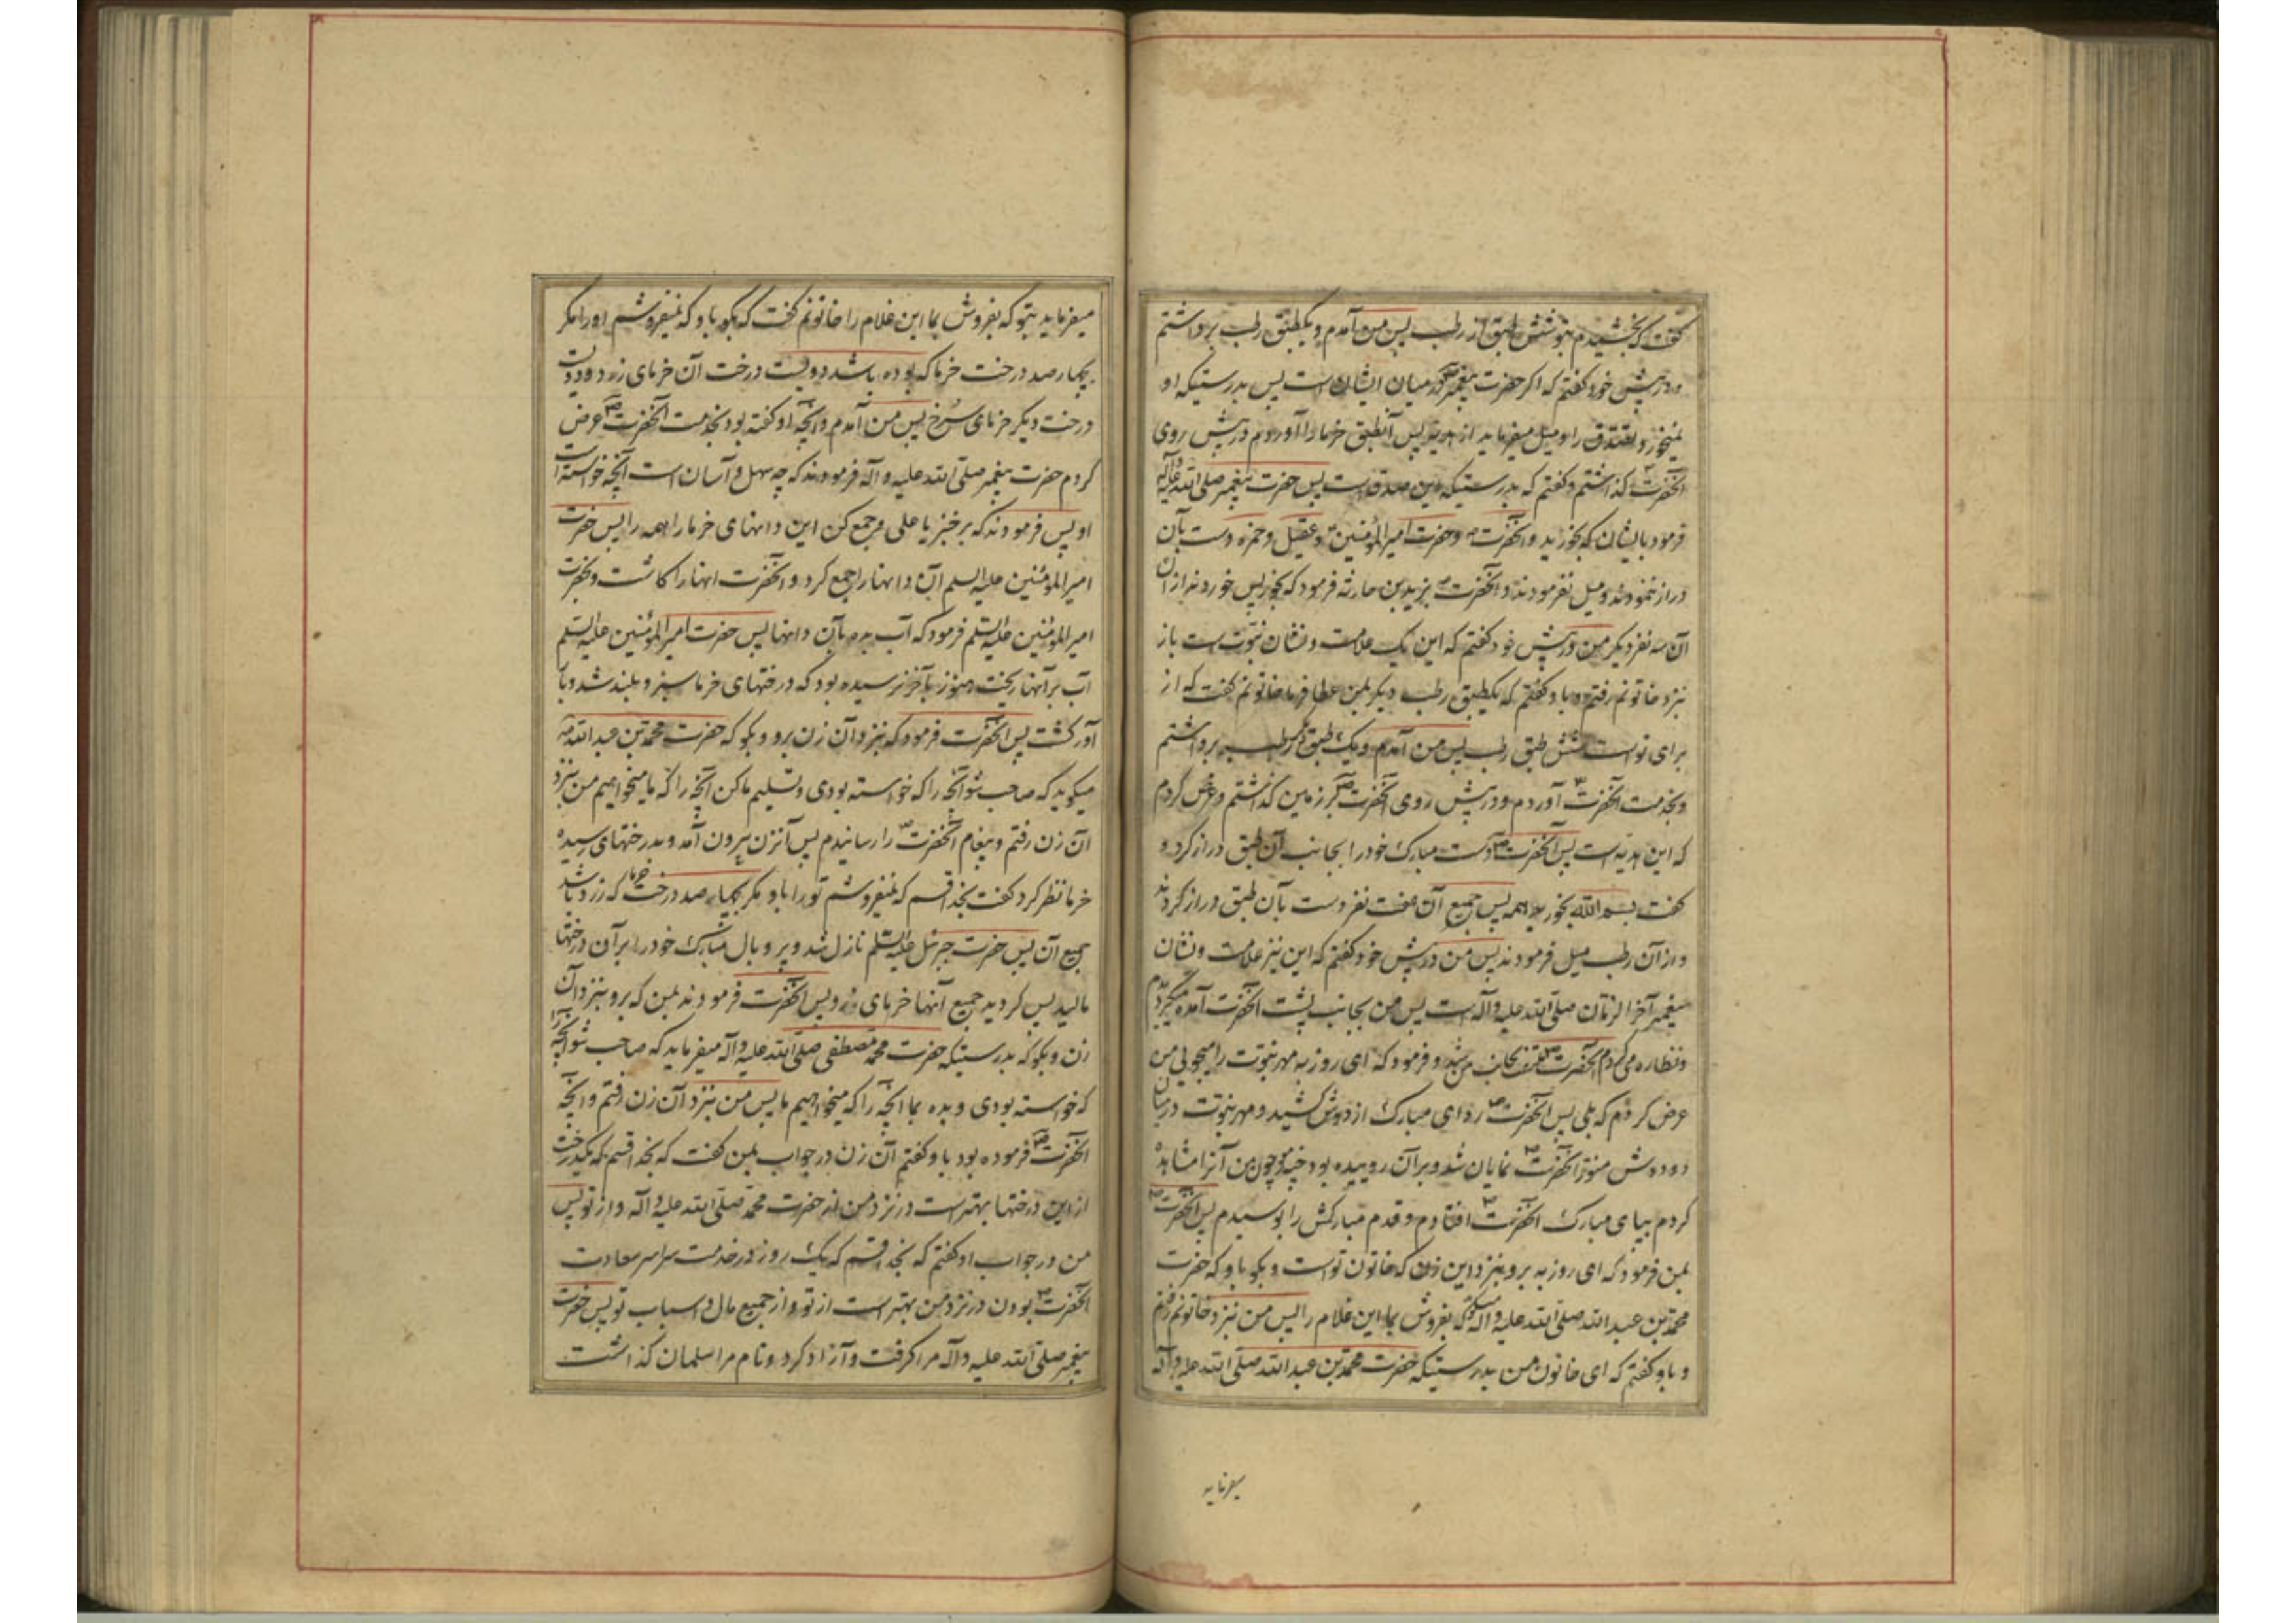 گفت که بخشیدم بتو شش طبق از رطب پس من آمدم و یکطبق رطب برداشتم
و در پیش خود گفتم که اگر حضرت پیغمبر در میان ایشان است پس بدرستیکه او
نمیخورد تصدق را و میل میفرماید از هدیه پس آنطبق خرما را آوردم و در پیش روی
آنحضرت گذاشتم و گفتم که بدرستیکه این صدقه است پس حضرت پیغمبر صلی الله علیه و آله
فرمود بایشان که بخورید و آنحضرت و حضرت امیرالمؤمنین و عقیل و حمزه دست بآن
دراز ننمودند و میل نفرمودند و آنحضرت بزید بن حارثه فرمود که بخور پس خوردند از آن
آن سه نفر دیگر من در پیش خود گفتم که این یک علامت و نشان نبوتست باز
نزد خاتونم رفتم و باو گفتم که یکطبق رطب دیگر بمن عطا فرما خاتونم گفت که از
برای تو است شش طبق رطب پس من آمدم و یک طبق رطب برداشتم
و بخدمت آنحضرت آوردم و در پیش روی آنحضرت بر زمین گذاشتم و عرض کردم
که این هدیه است پس آنحضرت دست مبارک خود را بجانب آن طبق دراز کرد و
گفت بسم الله بخورید همه پس جمیع آن هفت نفر دست بآن طبق دراز کردند
و از آن رطب میل فرمودند پس من در پیش خود گفتم که این نیز علامت و نشان
پیغمبر آخر الزمان صلی الله علیه و آله است پس من بجانب پشت آنحضرت آمده میگردیدم
و نظاره می کردم آنحضرت ملتفت بجانب من شد و فرمود که ای روزبه مهر نبوت را میجوئی من
عرض کردم که بلی پس آنحضرت ردای مبارک از دوش کشید و مهر نبوت در میان
دو دوش منور آنحضرت نمایان شد و بر آن روییده بود چند مو چون من آنرا مشاهده
کردم بپای مبارک آنحضرت افتادم و قدم مبارکش را بوسیدم پس آنحضرت
بمن فرمود که ای روزبه برو بنزد این زن که خاتون تو است و بگو باو که حضرت
محمد بن عبد الله صلی الله علیه و آله میگوید که بفروش بما این غلام را پس من نزد خاتونم رفتم
و باو گفتم که ای خاتون من بدرستیکه حضرت محمد بن عبد الله صلی الله علیه و آله
میفرماید
میفرماید بتو که بفروش بما این غلام را خاتونم گفت که بگو باو که نمیفروشم او را مگر
بچهار صد درخت خرما که بوده باشد دویست درخت آن خرمای زرد و دویست
درخت دیگر خرمای سرخ پس من آمدم و آنچه او گفته بود بخدمت آنحضرت عرض
کردم حضرت پیغمبر صلی الله علیه و آله فرمودند که چه سهل و آسان است آنچه خواسته است
او پس فرمودند که برخیز یا علی و جمع کن این دانهای خرما را همه را پس حضرت
امیرالمؤمنین علیه السلم آن دانها را جمع کرد و آنحضرت آنها را کاشت و بحضرت
امیرالمؤمنین علیه السلم فرمود که آب بده بآن دانها پس حضرت امیرالمؤمنین علیه السلم
آب بر آنها ریخت هنوز بآخر نرسیده بود که درختهای خرما سبز و بلند شد و بار
آور گشت پس آنحضرت فرمود که بنزد آن زن برو و بگو که حضرت محمد بن عبد الله
میگوید که صاحب شو آنچه را که خواسته بودی و تسلیم ما کن آنچه را که ما میخواهیم من بنزد
آن زن رفتم و پیغام آنحضرت را رسانیدم پس آنزن بیرون آمد و بدرختهای رسیده
خرما نظر کرد گفت بخدا قسم که نمیفروشم تو را باو مگر بچهار صد درخت خرما که زرد باشد
جمیع آن پس حضرت جبرئیل علیه السلم نازل شد و پر و بال مبارک خود را بر آن درختها
مالید پس گردید جمیع آنها خرمای زرد پس آنحضرت فرمودند بمن که برو بنزد آن
زن و بگو که بدرستیکه حضرت محمد مصطفی صلی الله علیه و آله میفرماید که صاحب شو آنچه را
که خواسته بودی و بده بما آنچه را که میخواهیم ما پس من بنزد آن زن رفتم و آنچه
آنحضرت فرموده بود باو گفتم آن زن در جواب بمن گفت که بخدا قسم که یکدرخت
از این درختها بهتر است در نزد من از حضرت محمد صلی الله علیه و آله و از تو پس
من در جواب او گفتم که بخدا قسم که یک روز در خدمت سراسر سعادت
آنحضرت بودن در نزد من بهتر است از تو و از جمیع مال و اسباب تو پس حضرت
پیغمبر صلی الله علیه و آله مرا گرفت و آزاد کرد و نام مرا سلمان گذاشت